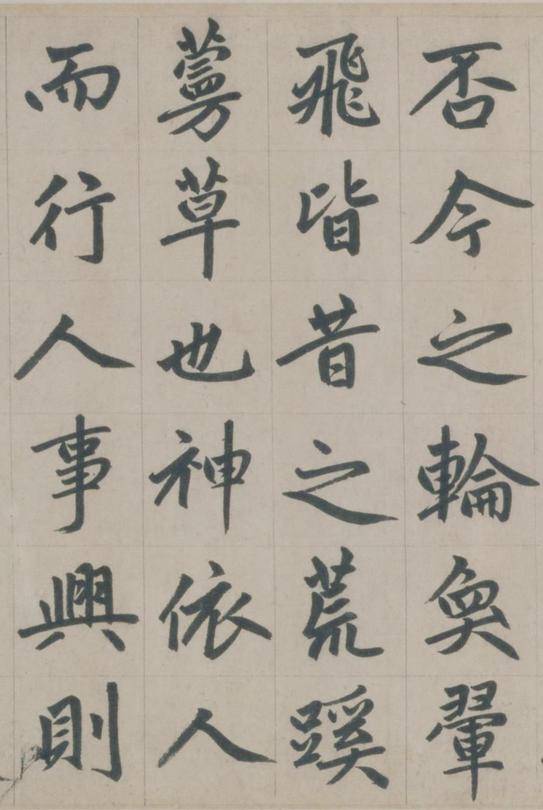 否今之輪奐翬
飛皆昔之荒蹊
蔓草也神依人
而行人事興則